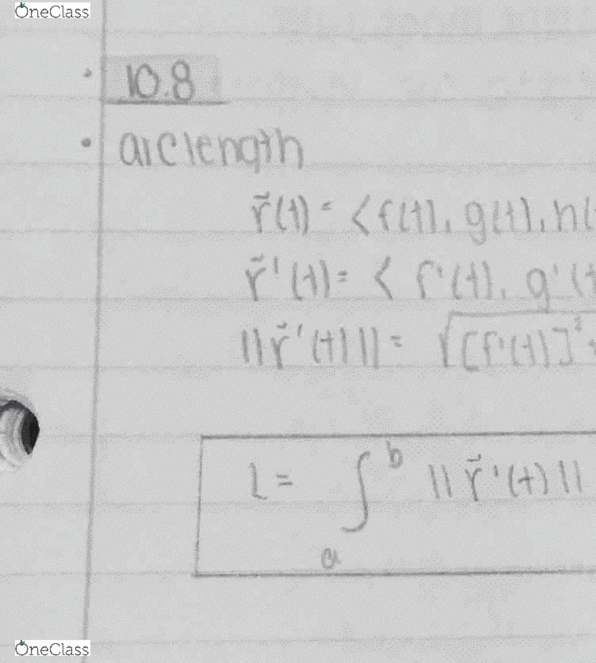 OneClass
10.8
arclength
r⃗(t) = <f(t), g(t), h(
r⃗'(t) = < f'(t), g'(t
||r⃗'(t)|| = √[f'(t)]²
L = ∫ₐᵇ ||r⃗'(t)||
OneClass